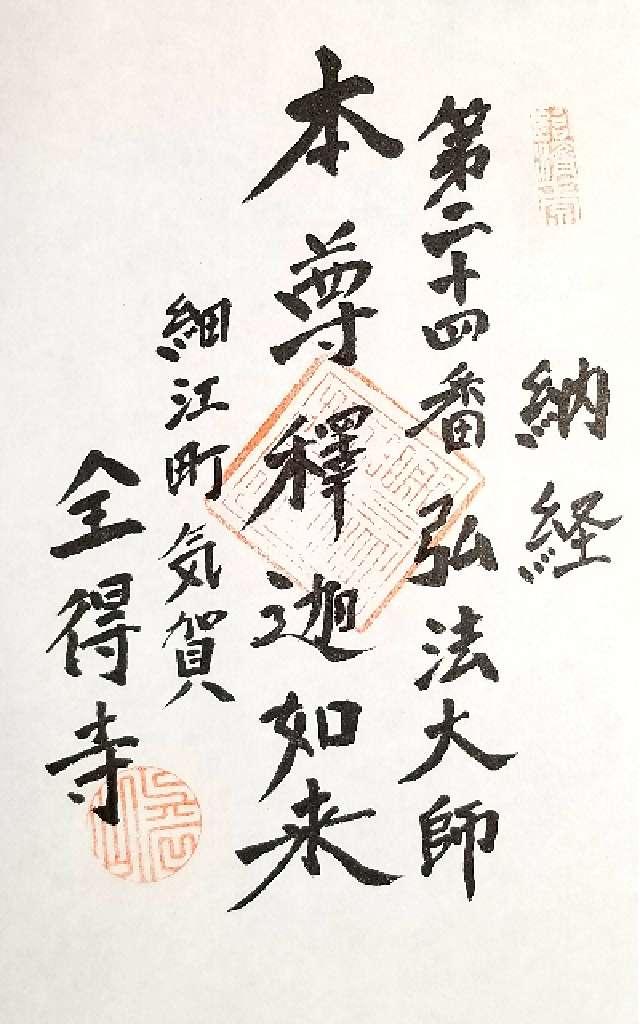 納経
第二十四番弘法大師
本尊釋迦如来
細江町気賀
全得寺